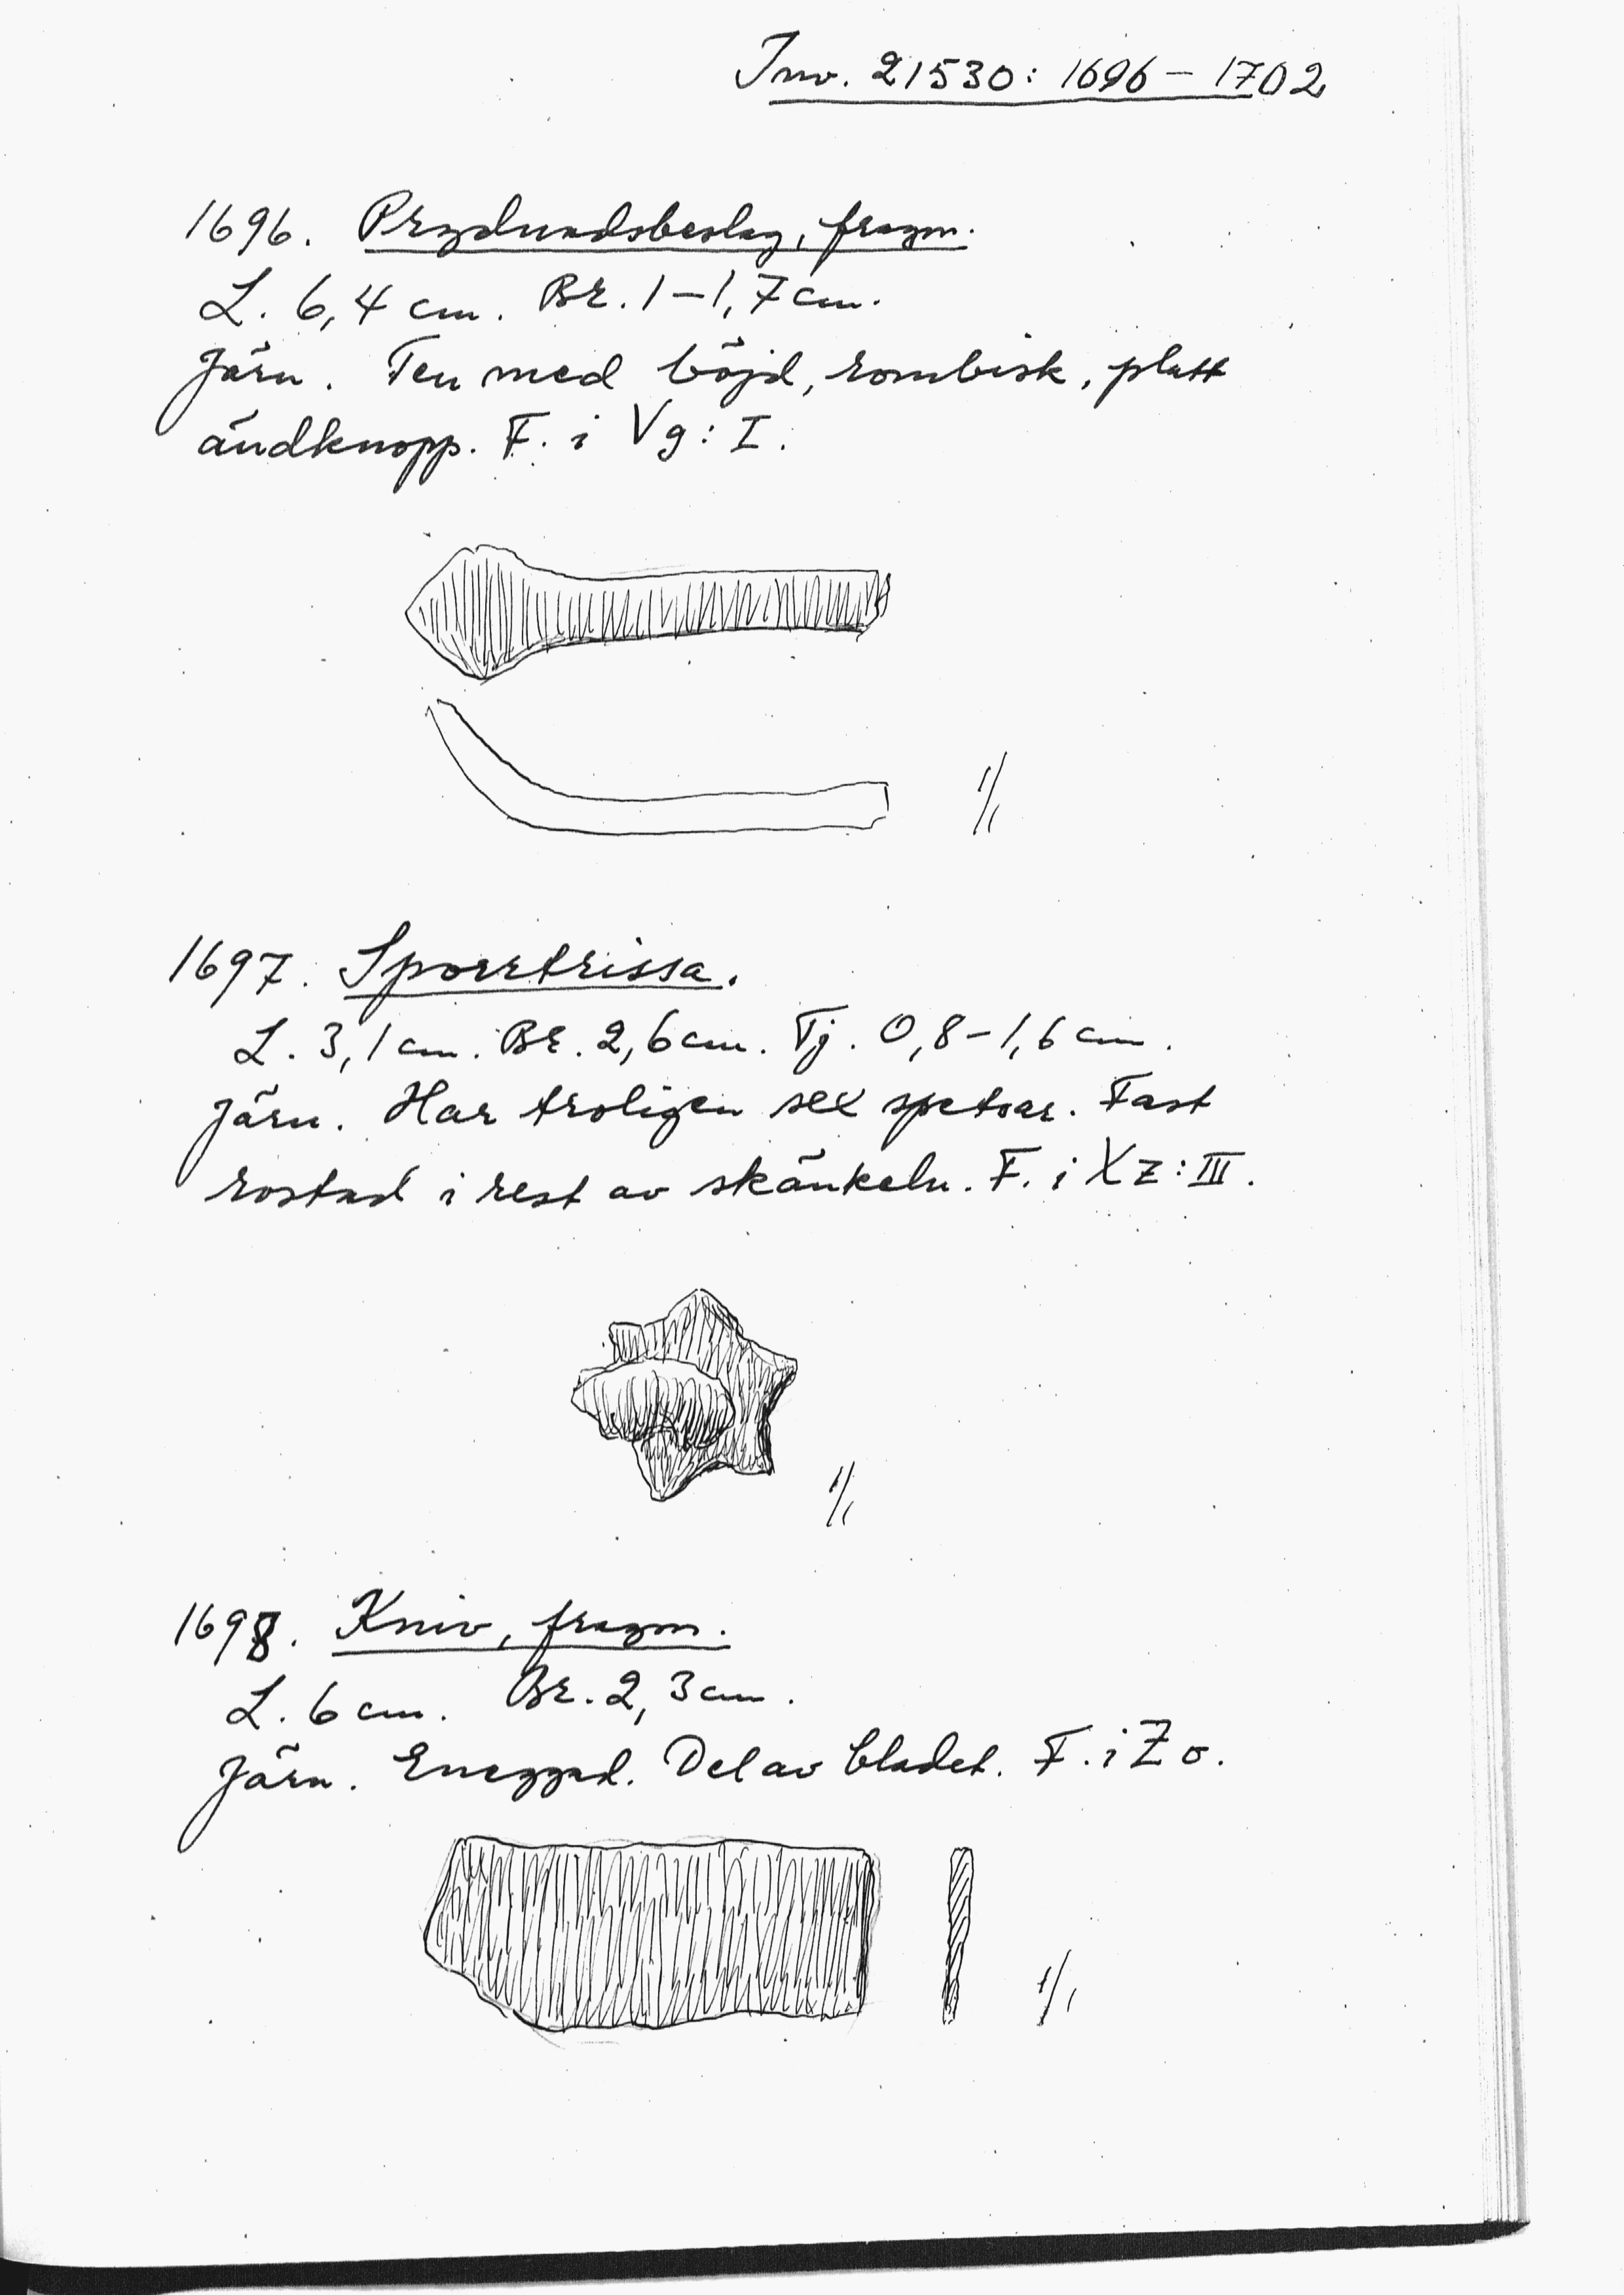 Inv. 21530: 1696 – 1702
1696. Prydnadsbeslag, fragm.
L. 6,4 cm. Br. 1–1,7 cm.
Järn. Ten med böjd, rombisk, platt
ändknopp. F. i Vg: I.
1/1
1697. Sporrtrissa.
L. 3,1 cm. Br. 2,6 cm. Tj. 0,8–1,6 cm.
Järn. Har troligen sex spetsar. Fast
rostad i rest av skänkeln. F. i Xz: III.
1/1
1698. Kniv, fragm.
L. 6 cm. Br. 2,3 cm.
Järn. Eneggad. Del av bladet. F. i Zo.
1/1